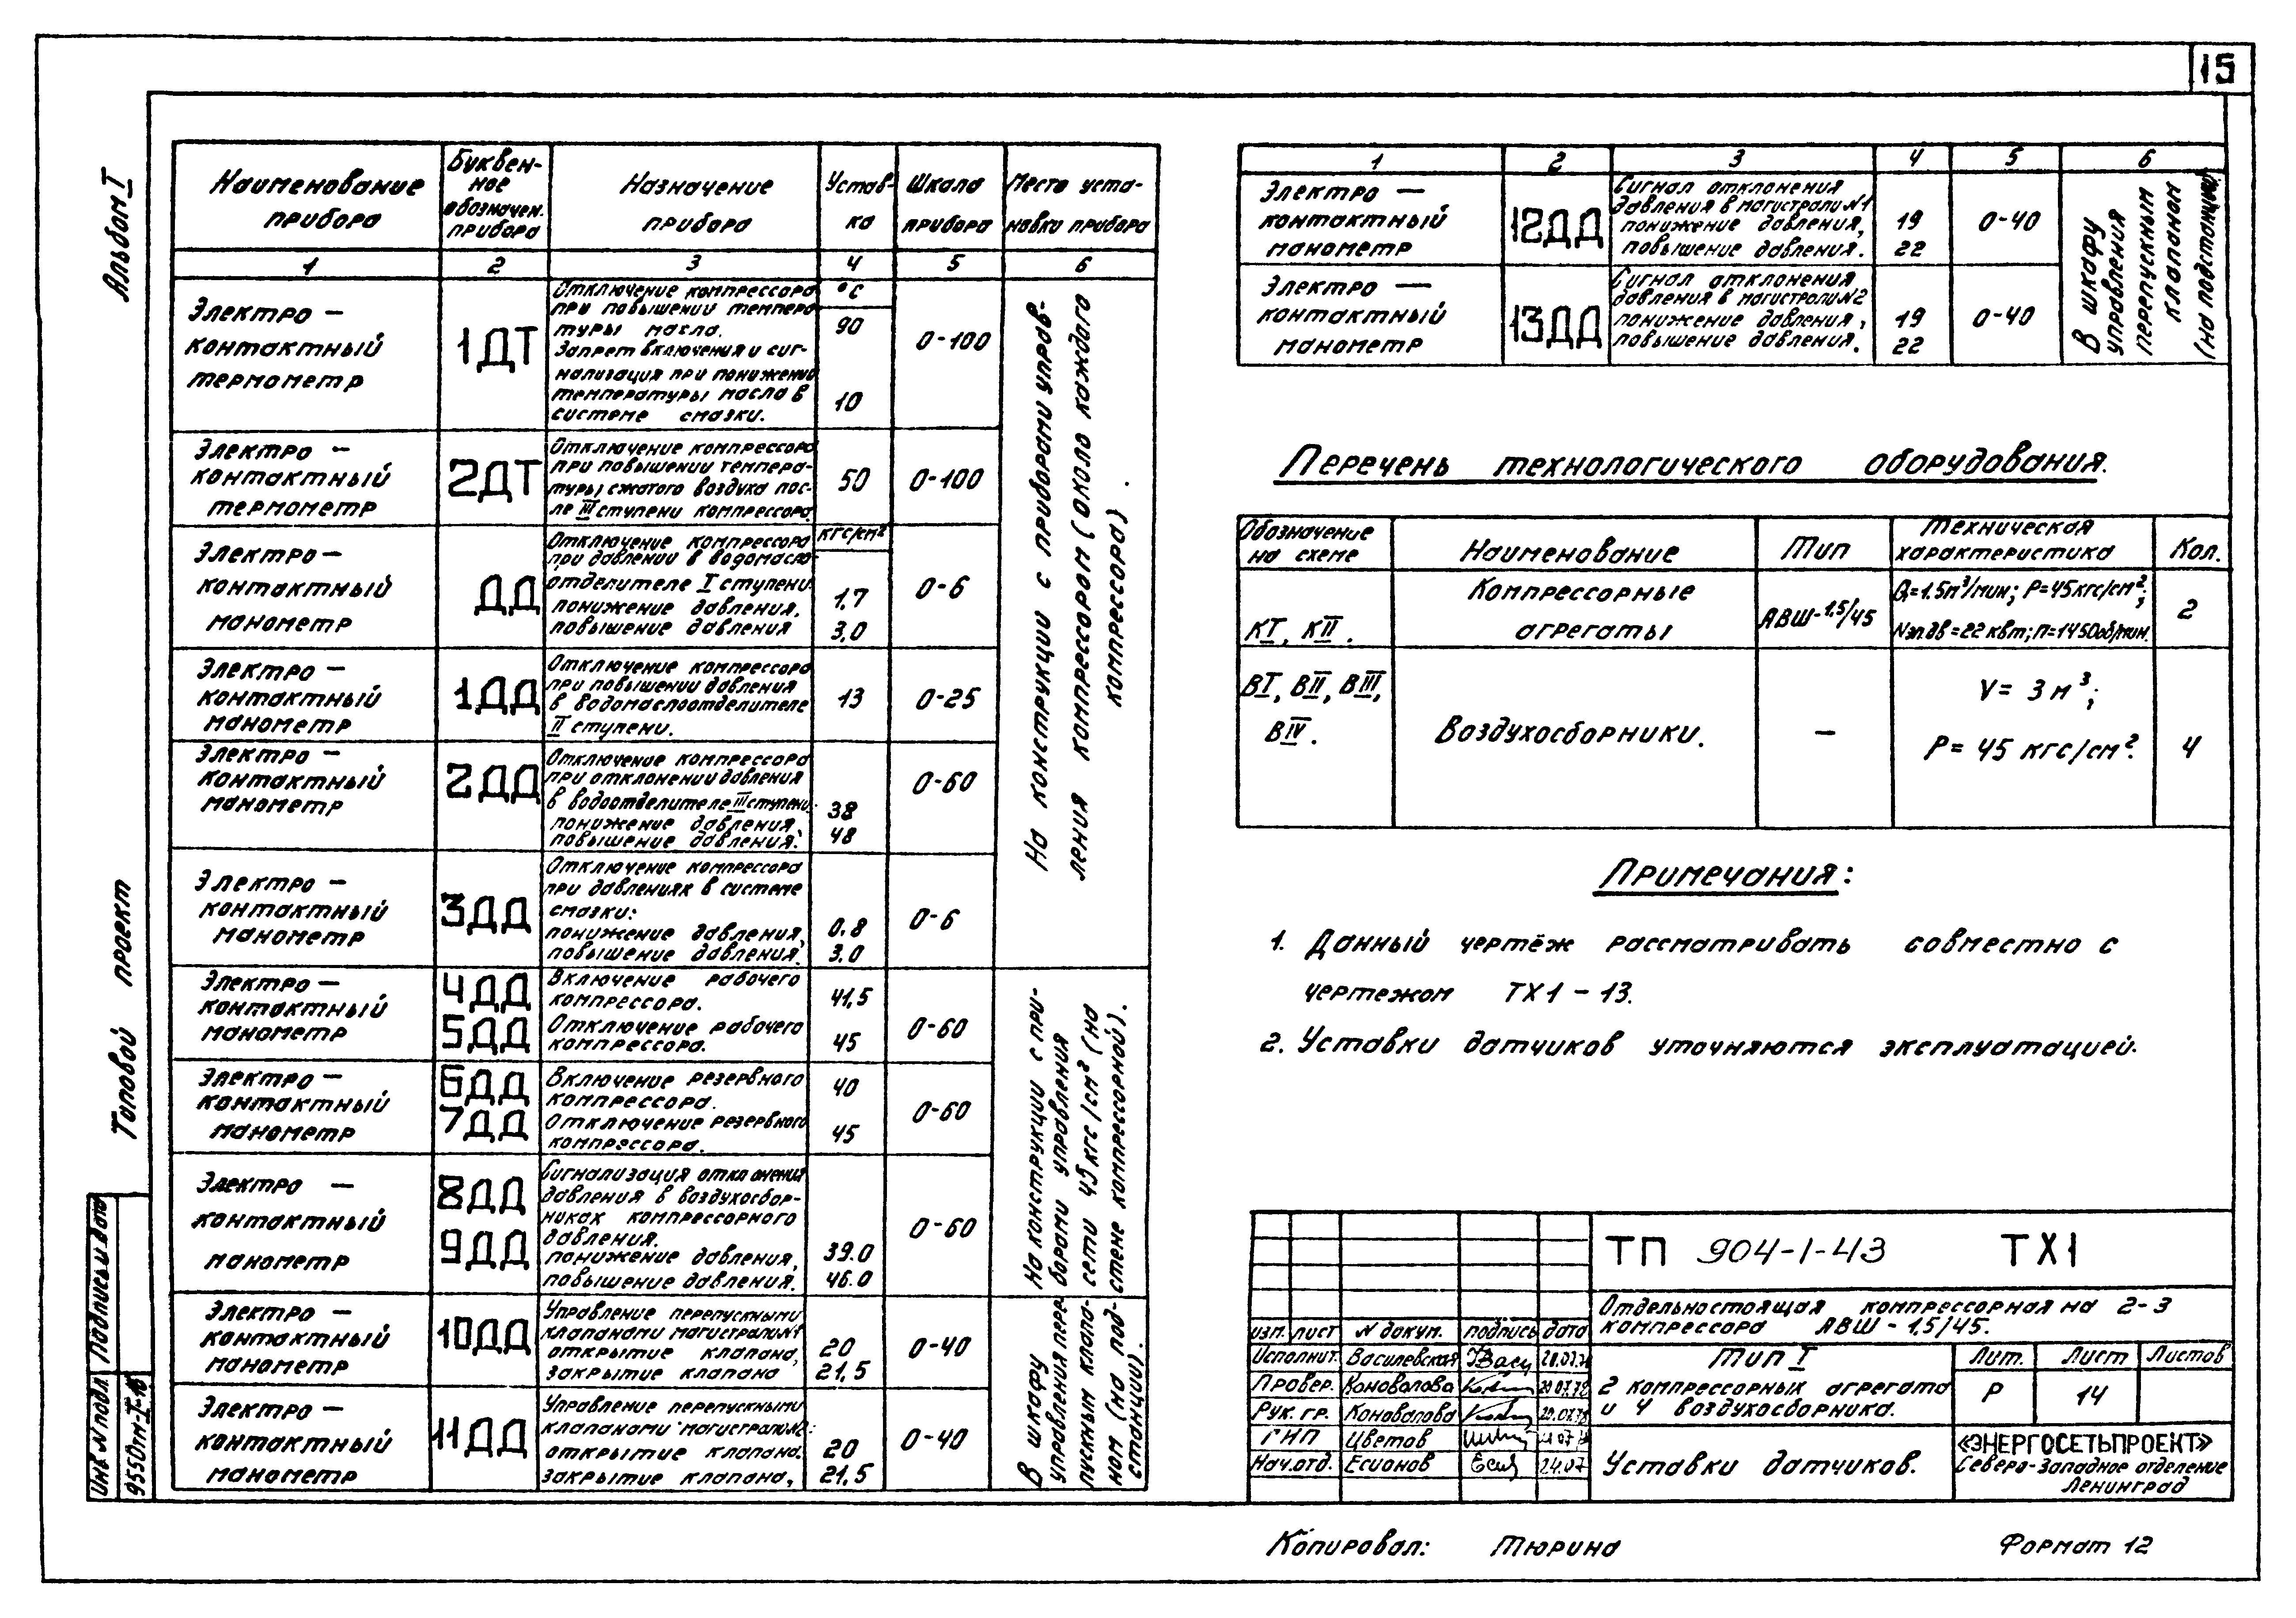 15
Альбом I
Типовой проект
Инв. N подл. Подпись и дата
9550тм-I-16
Наименование прибора
Буквен-
ное
обозначен.
прибора
Назначение
прибора
Устав-
ка
Шкала
прибора
Место уста-
новки прибора
1 2 3 4 5 6
Электро —
контактный
термометр
1ДТ
Отключение компрессора
при повышении темпера
туры масла.
Запрет включения и сиг-
нализация при понижении
температуры масла в
системе смазки.
°С
90
10
0-100
На конструкции с приборами управ-
ления компрессором (около каждого
компрессора).
Электро —
контактный
термометр
2ДТ
Отключение компрессора
при повышении темпера-
туры сжатого воздуха пос-
ле III ступени компрессора
50
0-100
Электро —
контактный
манометр
ДД
Отключение компрессора
при давлении в водомасло
отделителе I ступени
понижение давления.
повышение давления
кгс/см²
1,7
3,0
0-6
Электро —
контактный
манометр
1ДД
Отключение компрессора
при повышении давления
в водомаслоотделителе
II ступени.
13
0-25
Электро —
контактный
манометр
2ДД
Отключение компрессора
при отклонении давления
в водоотделителе III ступени:
понижение давления,
повышение давления.
38
48
0-60
Электро —
контактный
манометр
3ДД
Отключение компрессора
при давлениях в системе
смазки:
понижение давления,
повышение давления.
0.8
3.0
0-6
Электро —
контактный
манометр
4ДД
5ДД
Включение рабочего
компрессора.
Отключение рабочего
компрессора.
41,5
45
0-60
На конструкции с при-
борами управления
сети 45 кгс/см² (на
стене компрессорной).
Электро —
контактный
манометр
6ДД
7ДД
Включение резервного
компрессора.
Отключение резервного
компрессора.
40
45
0-60
Электро —
контактный
манометр
8ДД
9ДД
Сигнализация отклонения
давления в воздухосбор-
никах компрессорного
давления.
понижение давления,
повышение давления.
39.0
46.0
0-60
Электро —
контактный
манометр
10ДД
Управление перепускными
клапанами магистрали N1
открытие клапана,
закрытие клапана
20
21,5
0-40
В шкафу
управления пере
пускным клапа-
ном (на под-
станции).
Электро —
контактный
манометр
11ДД
Управление перепускными
клапанами магистрали N2:
открытие клапана.
закрытие клапана,
20
21,5
0-40
1 2 3 4 5 6
Электро —
контактный
манометр
12ДД
Сигнал отклонения
давления в магистрали N1
понижение давления,
повышение давления.
19
22
0-40
В шкафу
управления
перепускным
клапаном
(на подстанции)
Электро —
контактный
манометр
13ДД
Сигнал отклонения
давления в магистрали N2
понижение давления,
повышение давления.
19
22
0-40
Перечень технологического оборудования.
Обозначение
на схеме
Наименование
Тип
Техническая
характеристика
Кол.
КI, КII.
Компрессорные
агрегаты
АВШ-1,5/45
Q=1.5м³/мин; Р=45кгс/см²;
Nэл.дв=22 квт; п=1450об/мин.
2
ВI, ВII, ВIII,
ВIV.
Воздухосборники.
—
V= 3 м³;
Р= 45 кгс/см².
4
Примечания:
1. Данный чертёж рассматривать совместно с
чертежом ТХ1 - 13.
2. Уставки датчиков уточняются эксплуатацией.
ТП 904-1-43 ТХ1
Отдельностоящая компрессорная на 2-3
компрессора АВШ - 1,5/45.
изм. лист N докум. подпись дата
Исполнит. Василевская
Провер. Коновалова
Рук. гр. Коновалова
ГИП Цветов
Нач.отд. Есионов
Тип I
2 компрессорных агрегата
и 4 воздухосборника.
Лит. Лист Листов
Р 14
Уставки датчиков.
«ЭНЕРГОСЕТЬПРОЕКТ»
Северо-Западное отделение
Ленинград
Копировал: Тюрина Формат 12